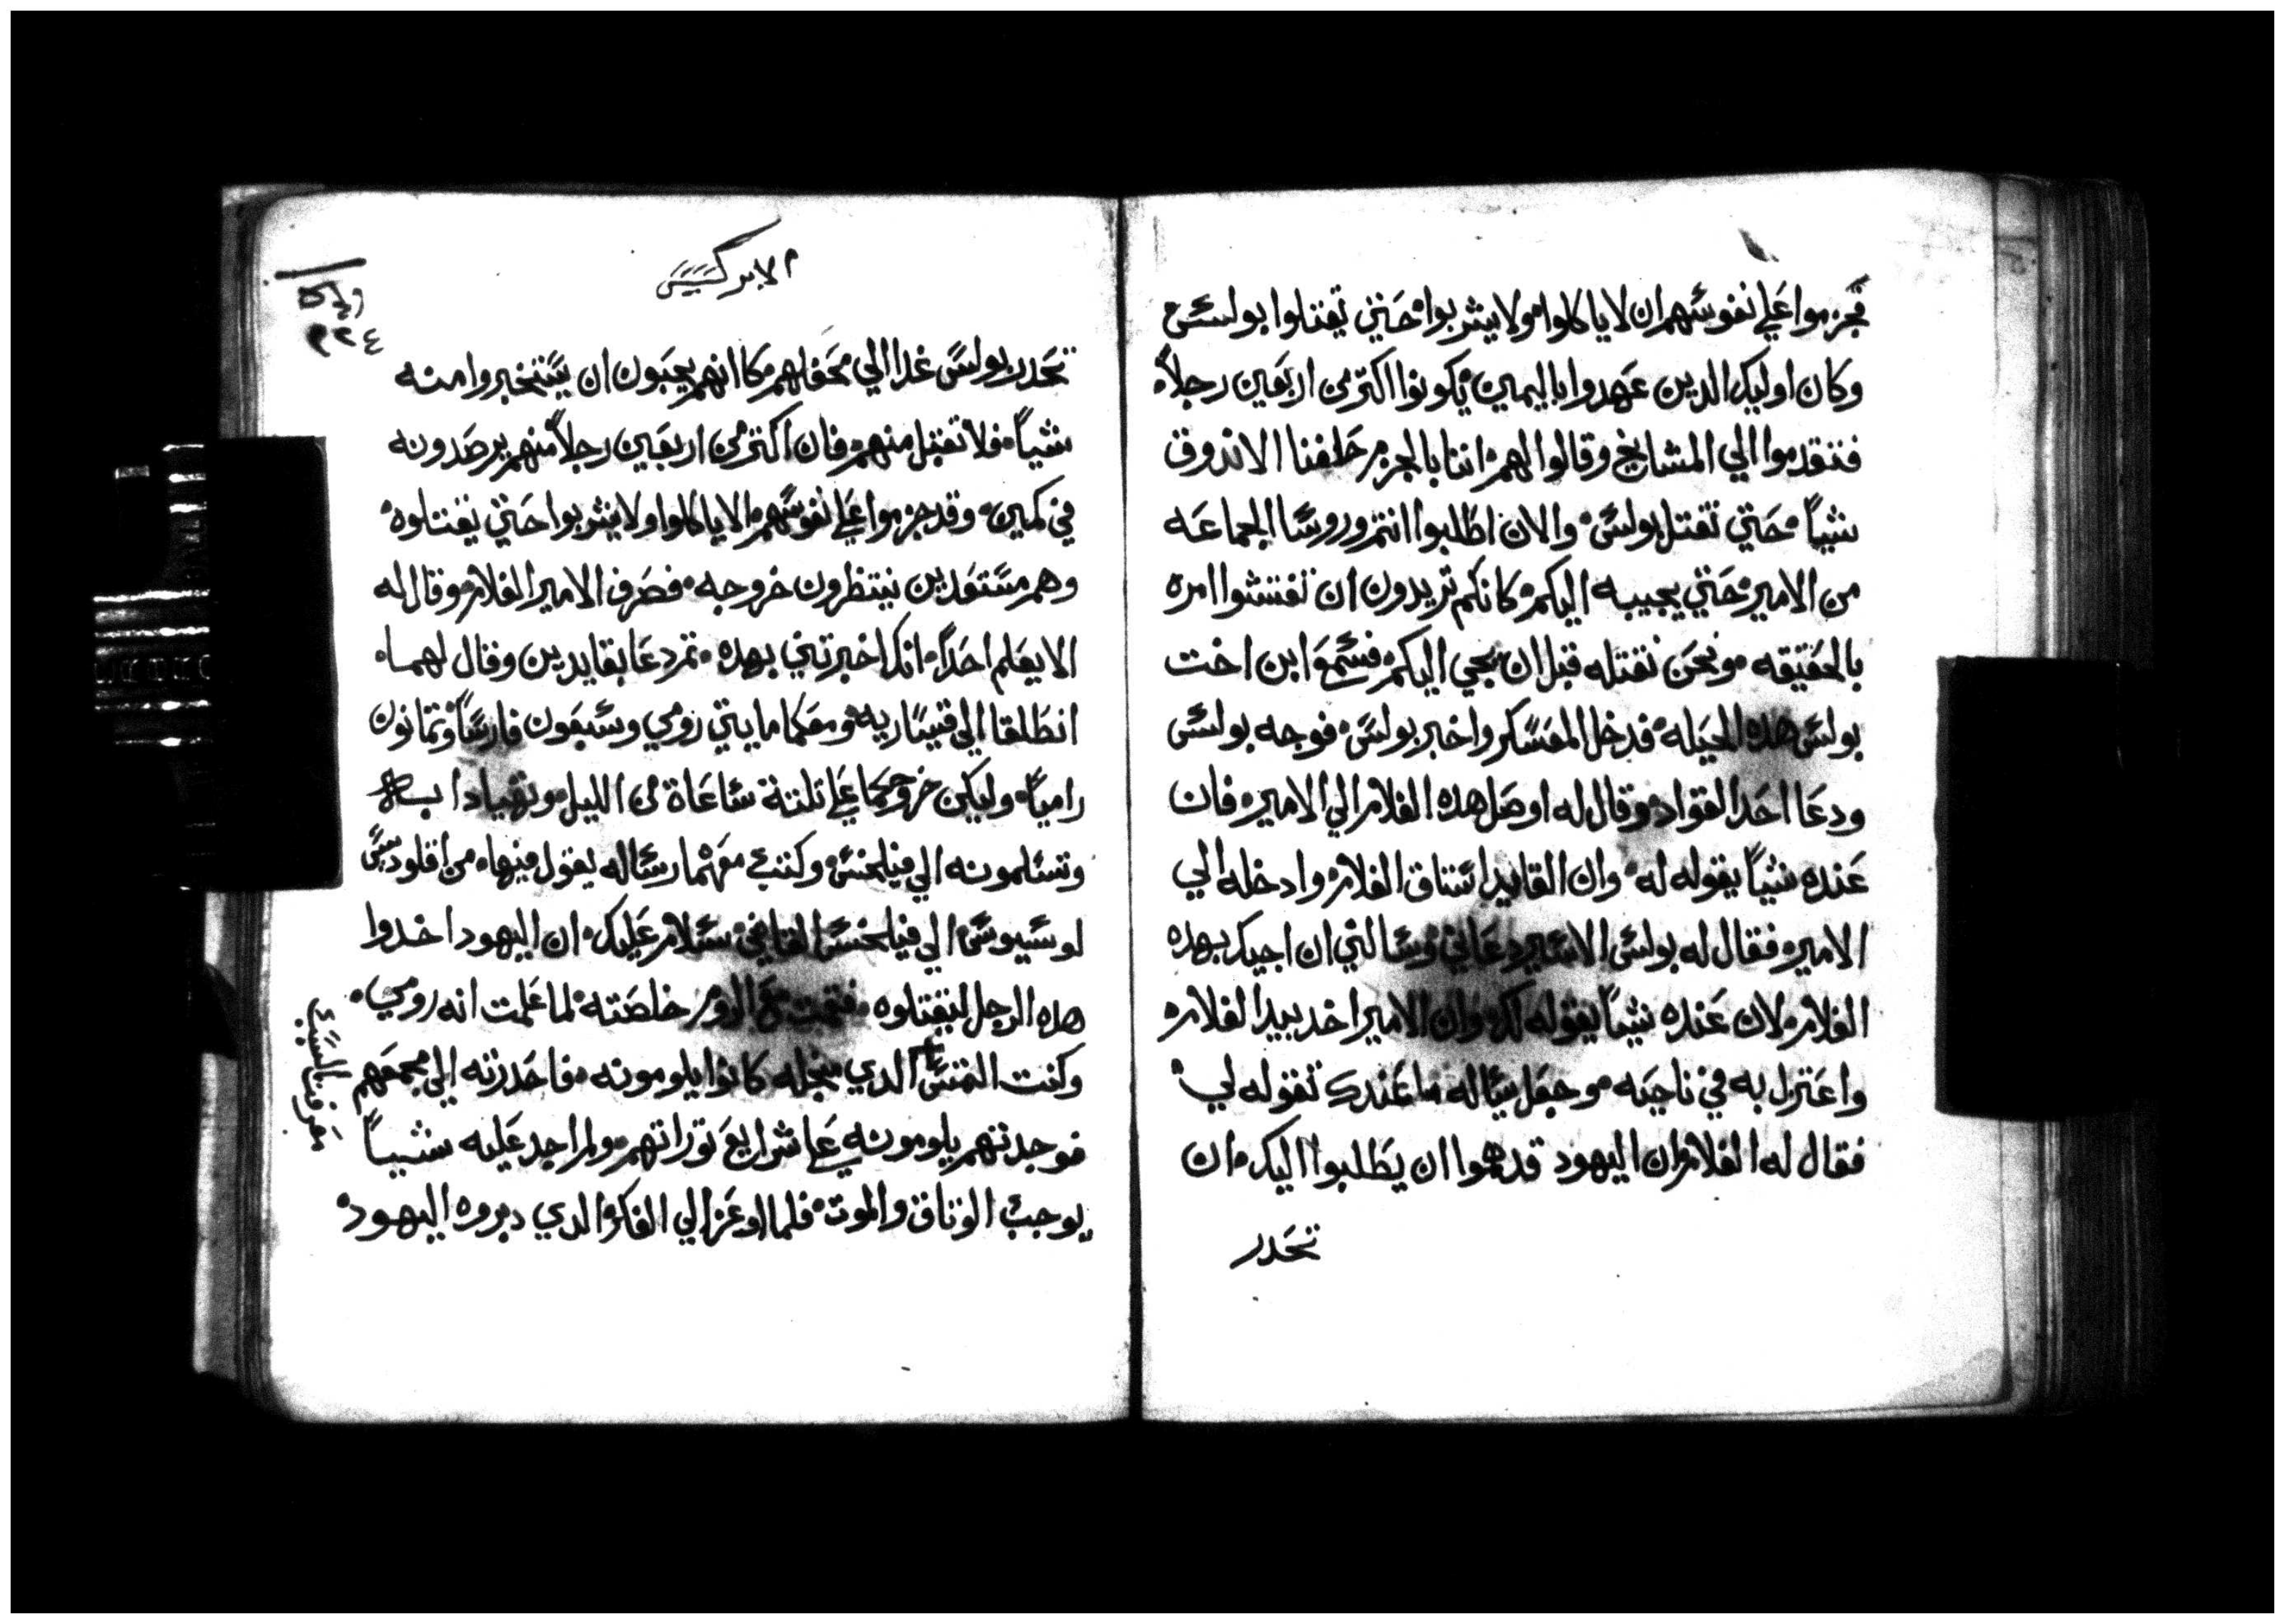 فجزموا علي نفوسهم ان لا ياكلوا ولا يشربوا حتي يقتلوا بولس
وكان اوليك الدين عهدوا باليمين يكونوا اكتر من اربعين رجلاً
فتقدموا الي المشايخ وقالوا لهم اننا بالجزم حلفنا الا ندوق
شياً حتي نقتل بولس والان اطلبوا انتم وروسا الجماعه
من الامير حتي يجيبه اليكم كانكم تريدون ان تفتشوا امره
بالحقيقه ونحن نقتله قبل ان يجي اليكم فسمع ابن اخت
بولس هده الحيله فدخل المعسكر واخبر بولس فوجه بولس
ودعا احد القواد وقال له اوصل هده الغلام الي الامير فان
عنده شياً يقوله له وان القايد استاق الغلام وادخله الي
الامير فقال له بولس الاسير دعاني وسالني ان اجيك بهده
الغلام لان عنده شياً يقوله لك وان الامير اخد بيد الغلام
واعتزل به في ناحيه وجعل يساله ما عندك تقوله لي
فقال له الغلام ان اليهود قد هموا ان يطلبوا اليك ان
تحدر
الابركسيس
٢٢٤
تحدر بولس غدا الي محفلهم كاانهم يحبون ان يستخبروا منه
شياً فلا تقبل منهم فان اكتر من اربعين رجلاً منهم يرصدونه
في كمين وقد جزموا علي نفوسهم الا ياكلوا ولا يشربوا حتي يقتلوه
وهم مستعدين ينتظرون خروجه فصرف الامير الغلام وقال له
الا يعلم احداً انك اخبرتني بهده تم دعا بقايدين وقال لهما
انطلقا الي قيساريه ومعكما مايتي رومي وسبعون فارساً وتمانون
رامياً وليكن خروجكما علي تلتة ساعاة من الليل وتهيا دابه
وتسلمونه الي فيلخس وكتب معهما رساله يقول فيها من اقلوديس
لوسيوس الي فيلخس القاضي سلام عليك ان اليهود اخدوا
هده الرجل ليقتلوه فقمت مع الروم خلصته لما علمت انه رومي
وكنت التمس الدي منجله كانوا يلومونه فاحدرته الي مجمعهم
فوجدتهم يلومونه علي شرايع توراتهم ولم اجد عليه شياً
يوجب الوتاق والموت فلما اوعز الي الفكر الدي دبروه اليهود
معرفة السبب